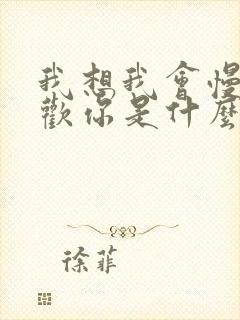 我想我會慢
歡你是什麼
徐菲